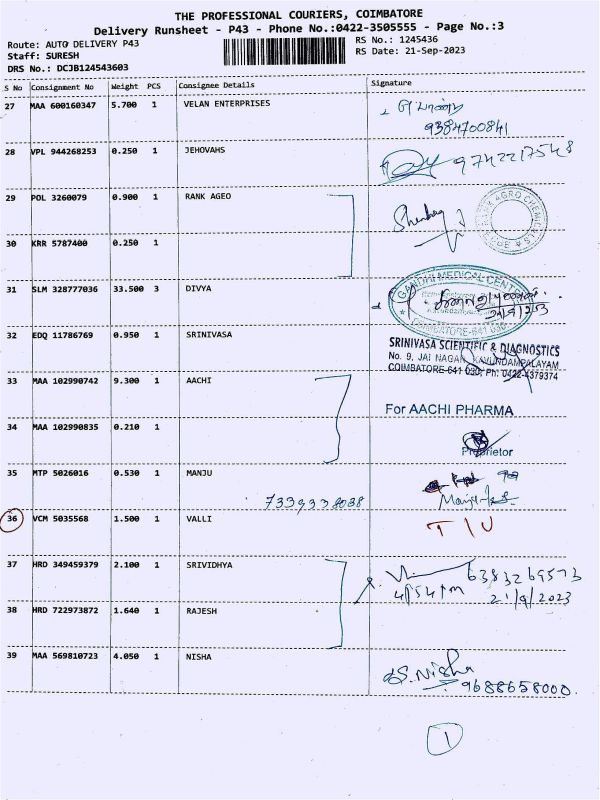 THE PROFESSIONAL COURIERS, COIMBATORE
Delivery Runsheet - P43 - Phone No.:0422-3505555 - Page No.:3
Route: AUTO DELIVERY P43
Staff: SURESH
DRS No.: DCJB124543603
RS No.: 1245436
RS Date: 21-Sep-2023
S No Consignment No Weight PCS Consignee Details Signature
27 MAA 600160347 5.700 1 VELAN ENTERPRISES
9384700841
28 VPL 944268253 0.250 1 JEHOVAHS
9742217548
29 POL 3260079 0.900 1 RANK AGEO
30 KRR 5787400 0.250 1
31 SLM 328777036 33.500 3 DIVYA
GANDHI MEDICAL CENTRE
COIMBATORE-641 030
32 EDQ 11786769 0.950 1 SRINIVASA
SRINIVASA SCIENTIFIC & DIAGNOSTICS
No. 9, JAI NAGAR, KAVUNDAMPALAYAM
COIMBATORE-641 030, Ph: 0422-4379374
33 MAA 102990742 9.300 1 AACHI
For AACHI PHARMA
34 MAA 102990835 0.210 1
Proprietor
35 MTP 5026016 0.530 1 MANJU
7339338038
36 VCM 5035568 1.500 1 VALLI
T I U
37 HRD 349459379 2.100 1 SRIVIDHYA
6383269573
4:54 pm 21/9/2023
38 HRD 722973872 1.640 1 RAJESH
39 MAA 569810723 4.050 1 NISHA
S. Nisha
9688658000
1